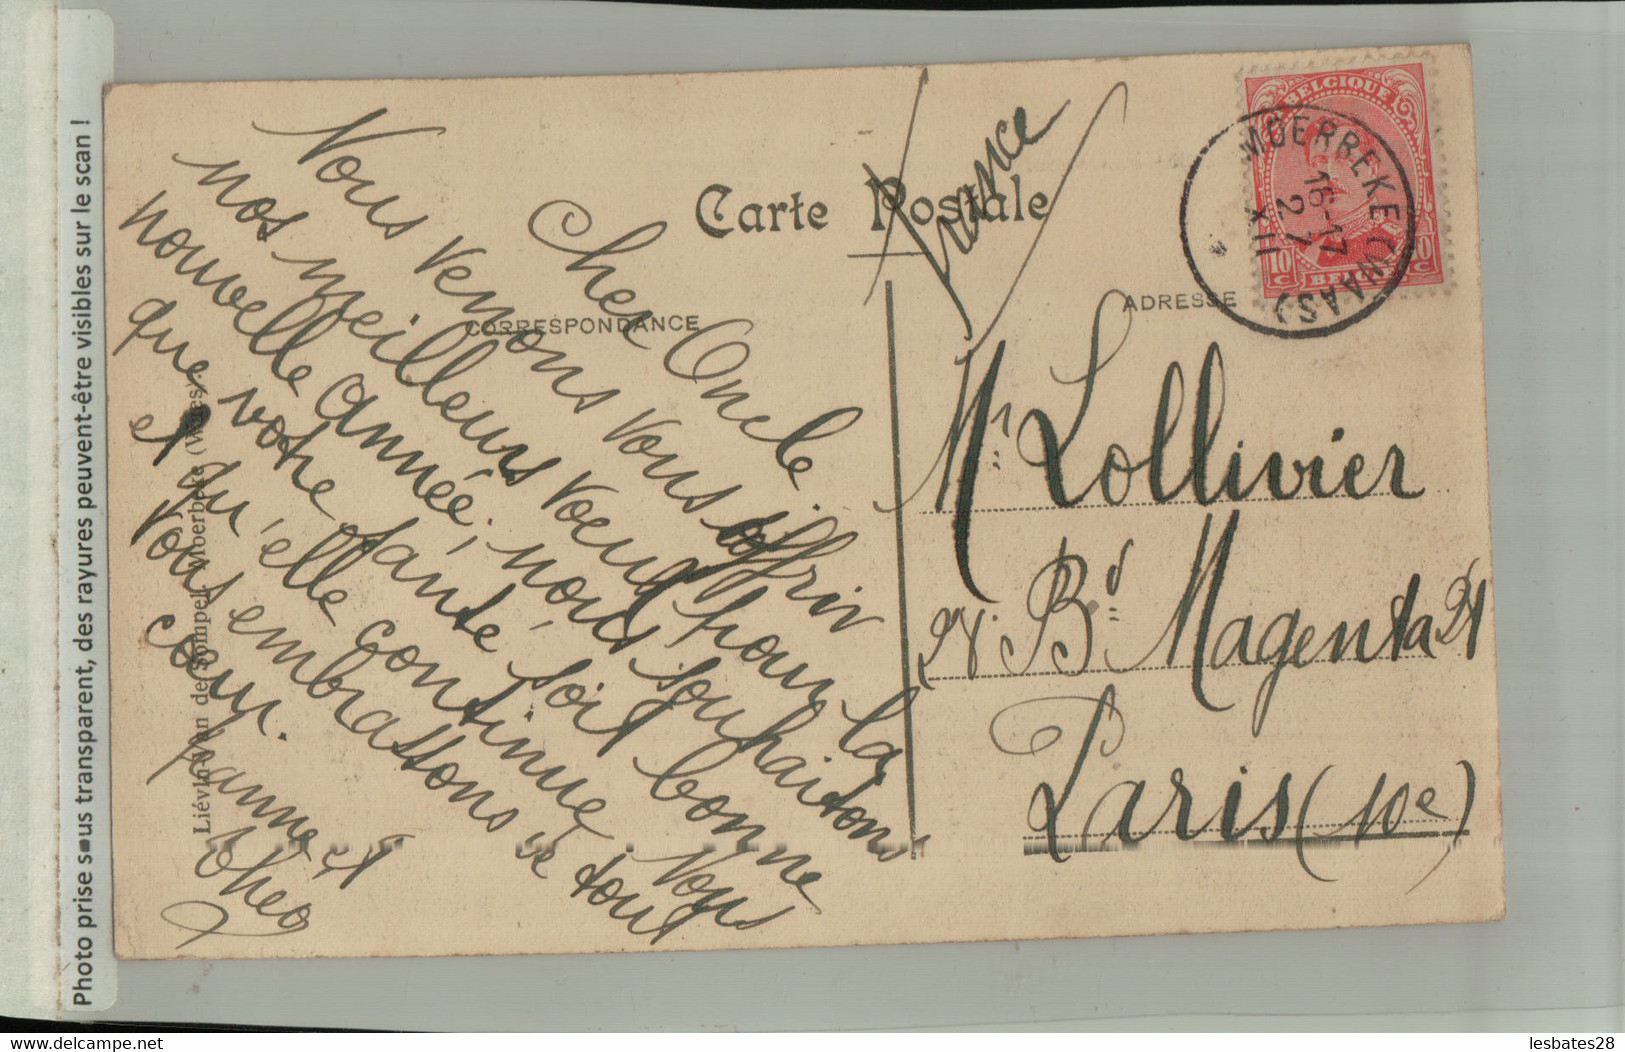 Photo prise sous transparent, des rayures peuvent-être visibles sur le scan !
Carte Postale
France
CORRESPONDANCE
ADRESSE
BELGIQUE
10 C
10 C
BELGIË
MOERBEKE (WAAS)
16-17
2
XII
Cher Oncle
Vous venons vous offrir
nos meilleurs voeux pour la
nouvelle année, nous souhaitons
que votre santé soit bonne
et qu'elle continue Nous
vous embrassons de tout
cœur.
Jeanne et
Théo
Mr Lollivier
Bd Magenta 21
Paris (10e)
Liévin Van de Sompel, Moerbeke (Waes).
lesbates28